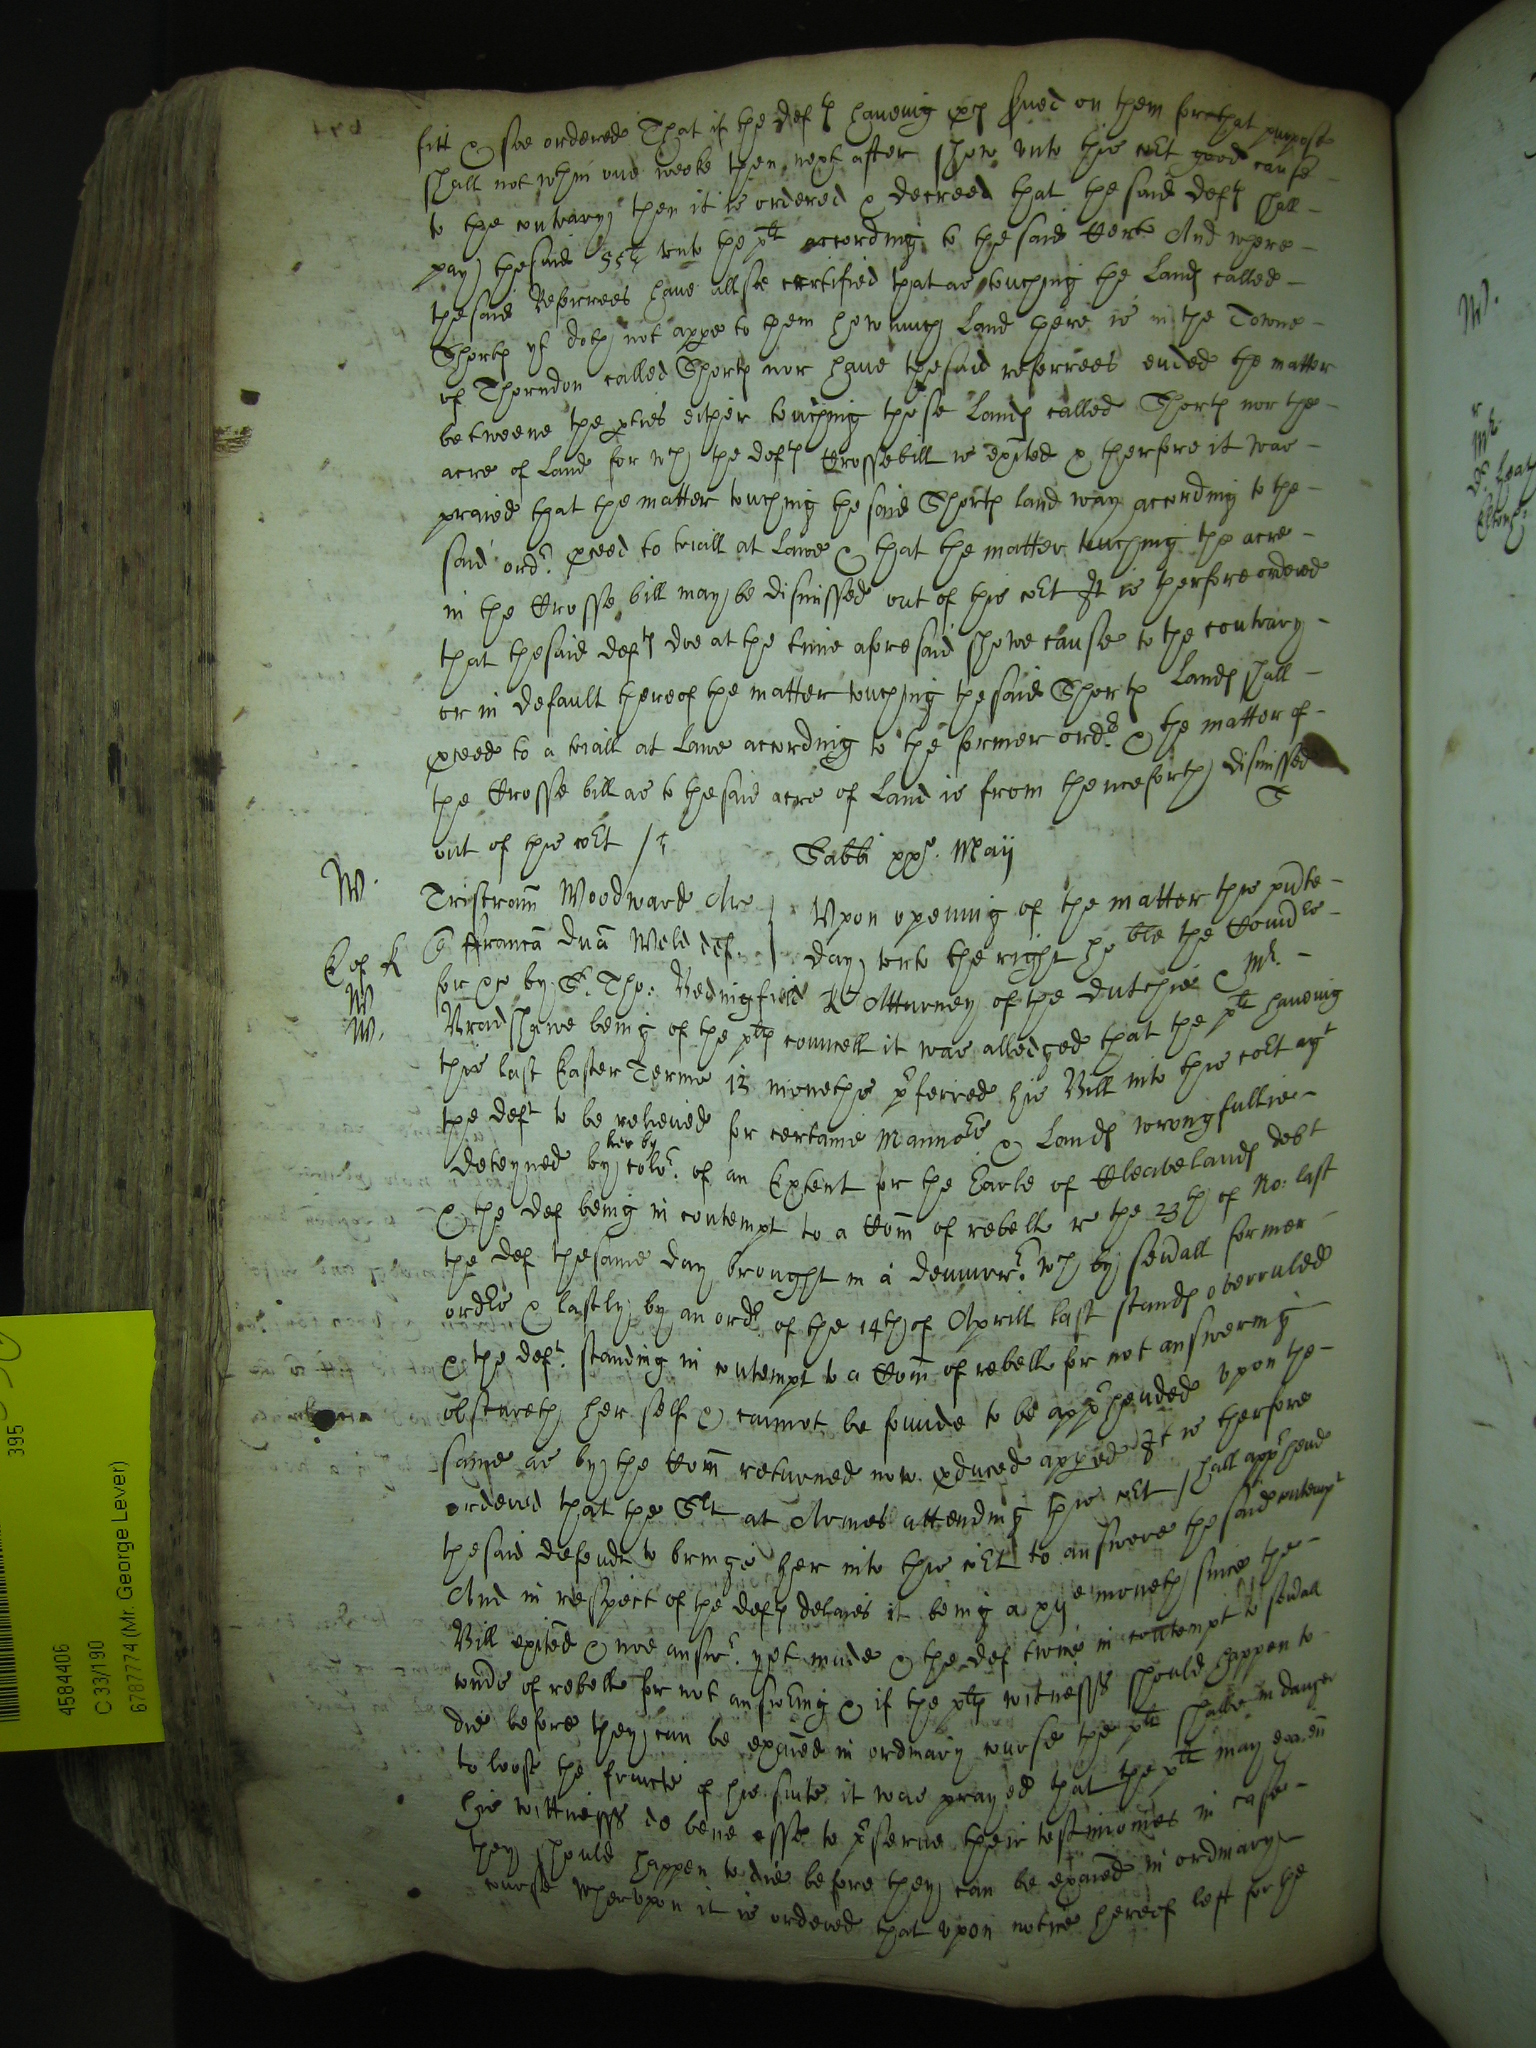 fitt & soe ordered That if the deftes haveing proces served on them for that purpose
shall not within one weeke then next after shew unto this cort good cause
to the contrary then it is ordered & decreed that the said deftes shall
pay the said 55li unto the plt according to the said Cert And where
the said Referrees have allsoe certified that as touching the Landes called
Shortes yt doth not appe to them how much Land there is in the Towne
of Thorndon called Shortes nor have the said referrees ended the matter
betweene the pties either touching those Landes called Shortes nor the
acre of Land for wch the deftes Crosse bill is exited & therfore it was
praied that the matter touching the said Shortes land may according to the
said ordr pceed to triall at Lawe & that the matter touching the acre
in the Crosse bill may be dismissed out of this cort It is therfore ordered
that the said deftes doe at the time aforesaid shewe cause to the contrary
or in default thereof the matter touching the said Shortes Landes shall
pceed to a triall at Lawe according to the former ordr & the matter of
the Crosse bill as to the said acre of Land is from thenceforth dismissed
out of this cort
Sabbi xxjo Maij
W.
Tristram Woodward
Francā Dnā Weld def.
Upon opening of the matter this pnte
day unto the right hoble the
for
by Sr Tho: Bedingfield Kt Atturney of the dutchie & Mr.
Bradshawe being of the pltes councell it was alledged that the plt haveing
this last Easter Terme 12 monethes pferred his Bill into this cort agt
the deft to be releived for certaine Mannors & Landes wrongfullie
deteyned by her by color of an Extent for the Earle of Cleavelandes debt
& the def being in contempt to a Com of rebell the 23th of No: last
the def the same day brought in a demurrr wch by sevall former
ordrs & lastly by an ordr of the 14th of Aprill last standes overruled
& the deft standing in contempt to a Com of rebell for not answering
obscureth her self & cannot be founde to be apphended upon the
same as by the Com returned now pduced appeed It is therfore
ordered that the Sert at Armes attending this cort shall apphend
the said defendt to bringe her into this cort to answere the said contempt
And in respect of the deftes delaies it being a xije moneth since the
Bill exited & noe answr yet made & the def twice in contempt to sevall
Coms of rebell for not answering & if the pltes witnesses should happen to
die before they can be exaied in ordinary course the plt shalbe in danger
to loose the fruicte of his suite it was prayed that the plt may exam
his wittnesses de bene esse to pserve their testimonies in case
they should happen to die before they can be exaied in ordinary
course Wherupon it is ordered that upon notice hereof left for the
395
4584406
C 33/190
6787774 (Mr. George Lever)